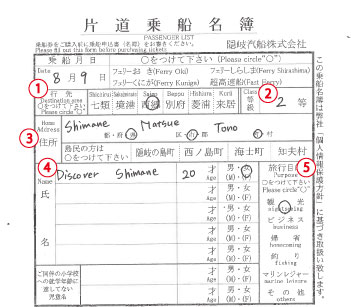 片道乗船名簿
PASSENGER LIST
乗船券をご購入前に乗船申込書(名簿)をお書き下さい。
Please fill out this form before purchasing tickets
隠岐汽船株式会社
乗船月日
○をつけて下さい (Please circle"○")
Date 8月9日
フェリーおき(Ferry Oki) フェリーしらしま(Ferry Shirashima)
フェリーくにが(Ferry Kuniga) 超高速船(Fast Ferry)
①
行先
Destination area
○をつけて下さい
(Please circle"○")
Shichirui 七類
境港
Saigo 西郷
Beppu 別府
Hishiura 菱浦
Kuri 来居
Class 等級
2 等
②
③
Home Address
住所
Shimane 都・府・県 Matsue 区・市・郡 Tono 町・村
島民の方は
○をつけて下さい
隠岐の島町
西ノ島町
海士町
知夫村
④
Name
氏名
Discover Shimane 20 才 Age 男・女 (M)・(F)
才 Age 男・女 (M)・(F)
才 Age 男・女 (M)・(F)
才 Age 男・女 (M)・(F)
才 Age 男・女 (M)・(F)
⑤
旅行目的
Purpose
(Please circle"○")
観光
sightseeing
ビジネス
business
帰省
homecoming
釣り
fishing
マリンレジャー
marine leisure
その他
others
ご同伴の小学校
への就学年齢に
達してない
児童名
この乗船名簿は弊社「個人情報保護方針」に基づき取扱い致します。